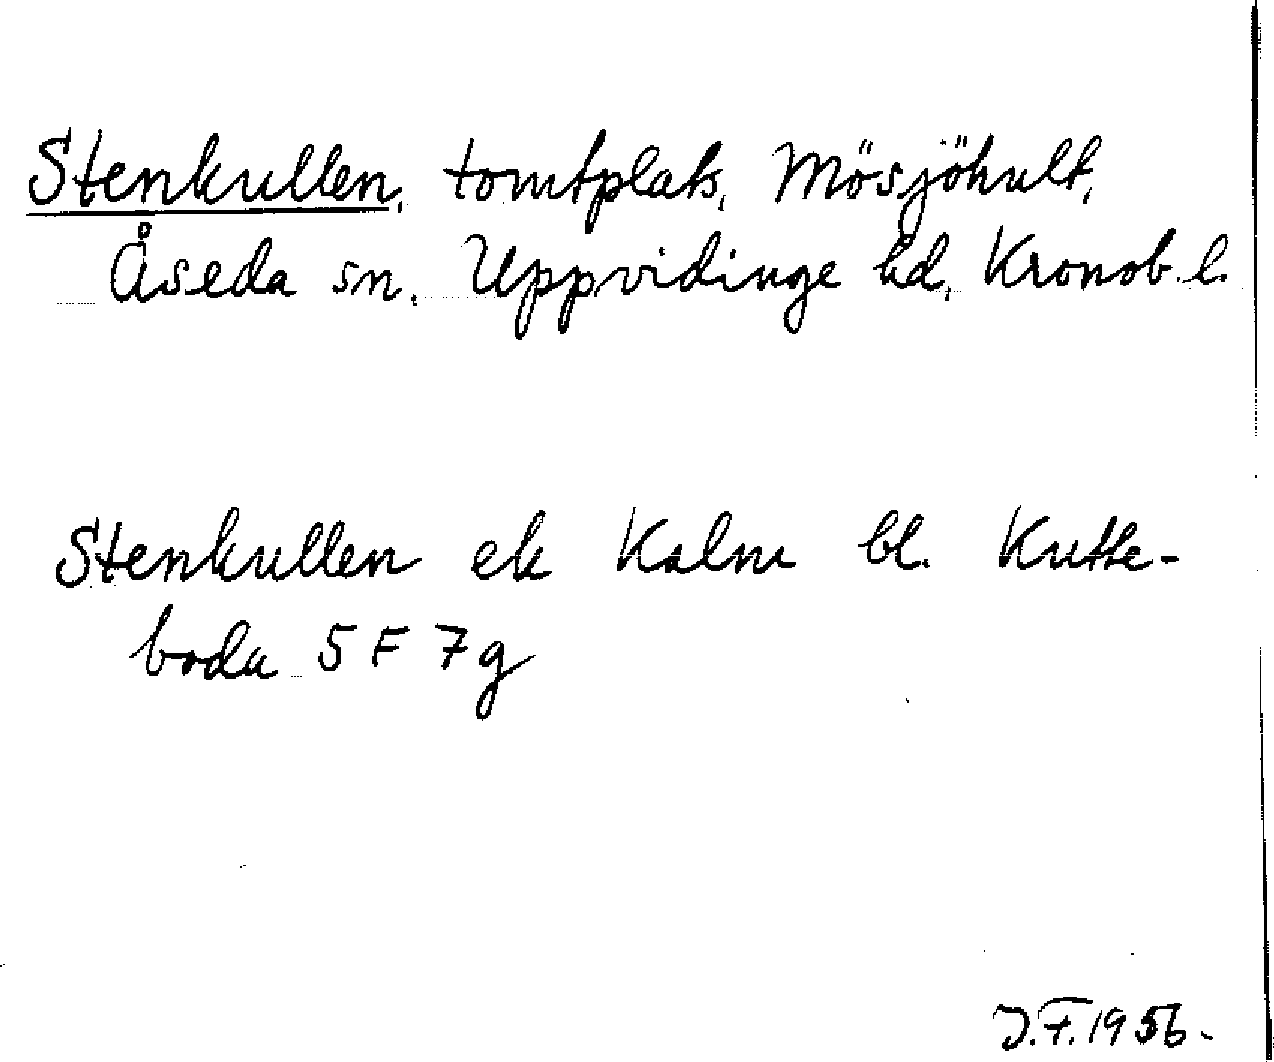 Stenkullen, tomtplats, Mösjöhult,
Åseda sn. Uppvidinge hd, Kronob. l.
Stenkullen ek Kalm bl. Kutte-
boda 5 F 7 g
J.F. 1956.